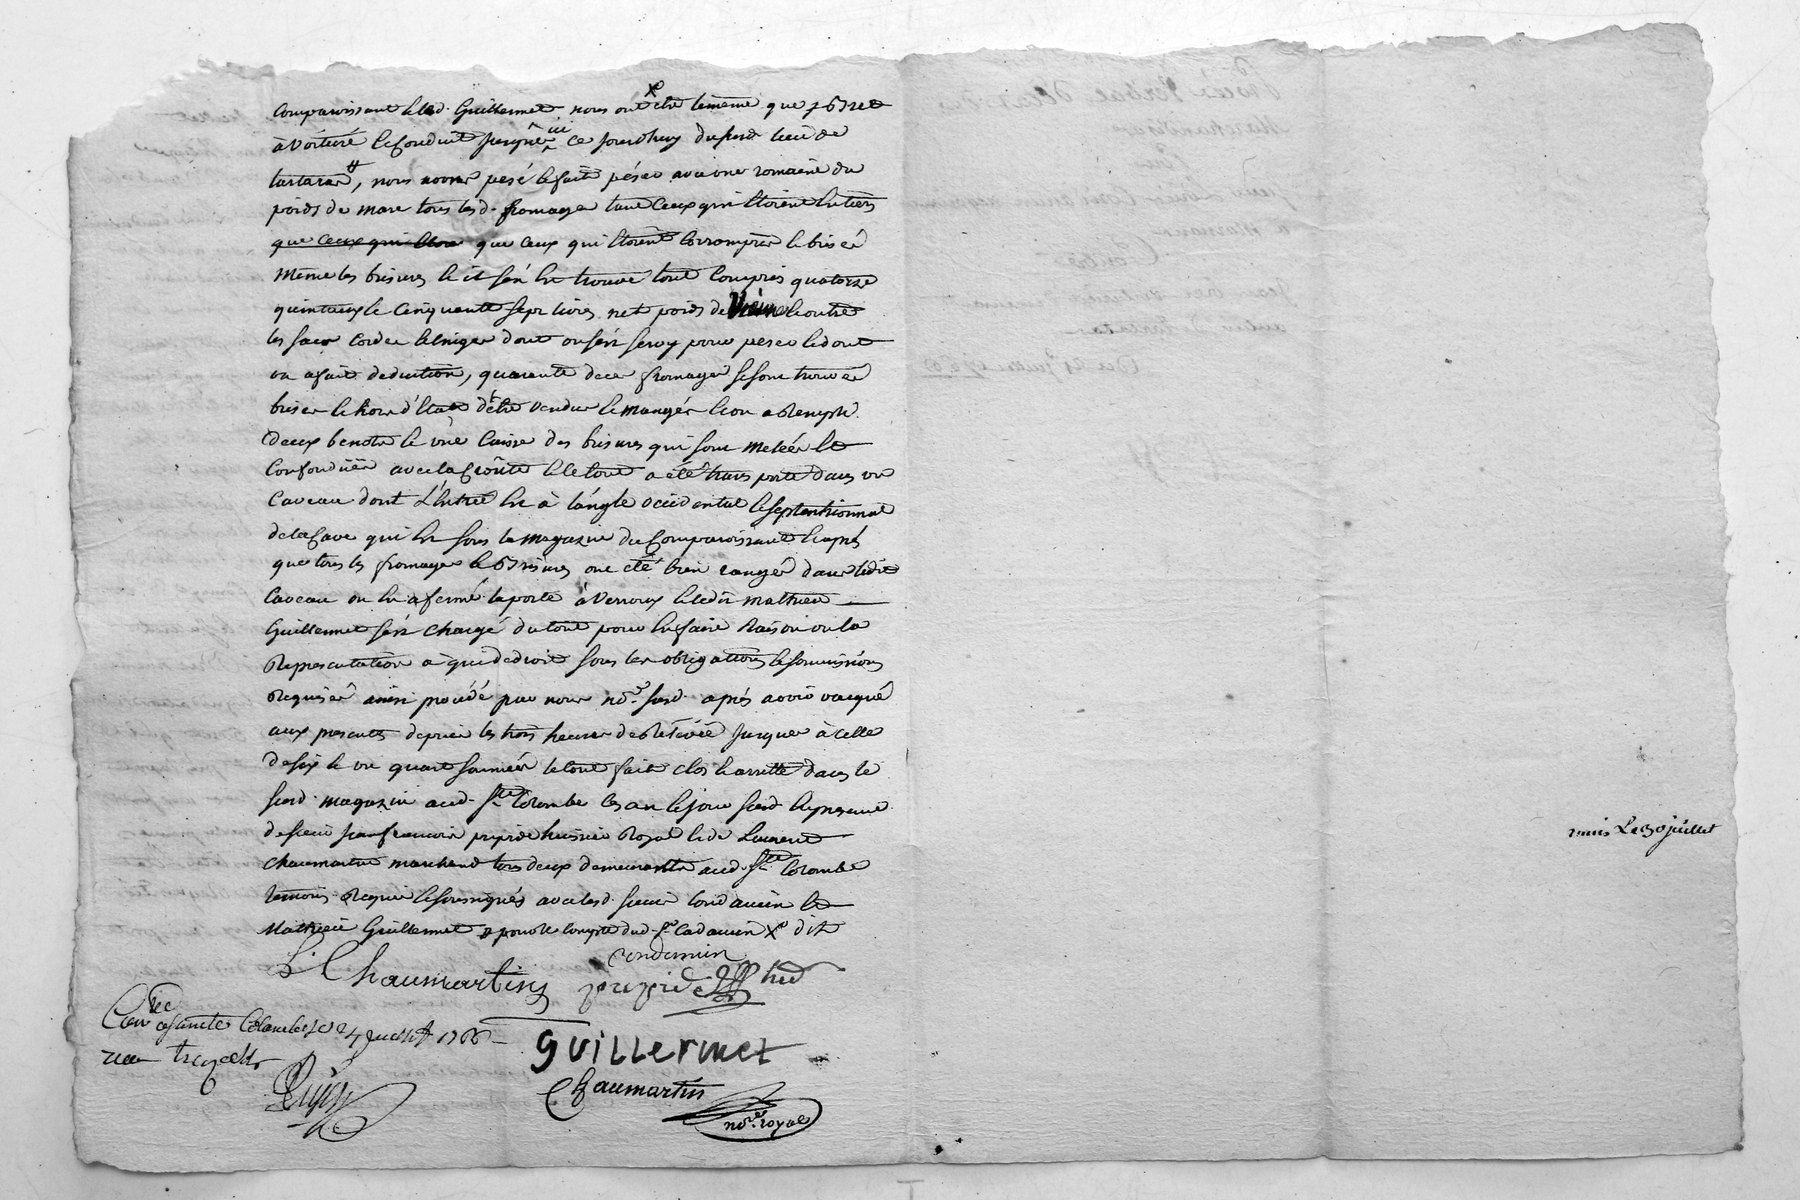 Comparoissant & led. Guillermet nous ont X dit lememe que & Bret
à voituré & conduit jusque ici ce jourdhuy dususd. lieu de
tartaras, nous avons pesé & fait péser avec une romaine du
poids de marc tous lesd. fromages tant ceux qui étoient entiers
que ceux qui étoient corrompus & brisés
meme les brisures & il s'én est trouvé tout compris quatorze
quintaux & cinquante sept livres net poids de
les sacs cordes & linges dont on s'én servy pour peser & dont
on a fait deduction, quarante de ces fromages se sont trouvés
brisés & hors d'état d'étre vendus & mangés & on a remply
deux benots & une caisse des brisures qui sont melées &
confondües avec la croûte & le tout a été transporté dans un
caveau dont l'entrée est à l'angle occidental & septentrionnal
de la cave qui est sous le magazin du comparoissant & après
que tous les fromages & brisures ont été bien rangés dans ledit
caveau on en a fermé la porte à verroux & ledit mathieu
Guillermet s'ést chargé du tout pour en faire raison ou la
representation a qui de droit sous les obligations & soumissions
requises ainsi procédé par nous nore. susd. après avoir vacqué
aux presentes depuis les trois heures de relévée jusques à celle
de six & un quart sonnées le tout fait clos & arretté dans le
susd. magazin aud. Ste. Colombe les an & jour susd. en presence
de sieur jean francois prepide huissier Royal & de Laurent
Chaumartin marchand tous deux demeurants aud. Ste. Colombe
temoins requis & soussignés avec lesd. sieur condamin &
Mathieu Guillermet # pour le compte dud. Sr. Condamin X dit
Condamin
L. Chaumartin prepide
Con. ce & à sainte Colombe le 24 juillet 1766
Guillermet
Chaumartin
nore. royal
remis Le 30 juillet